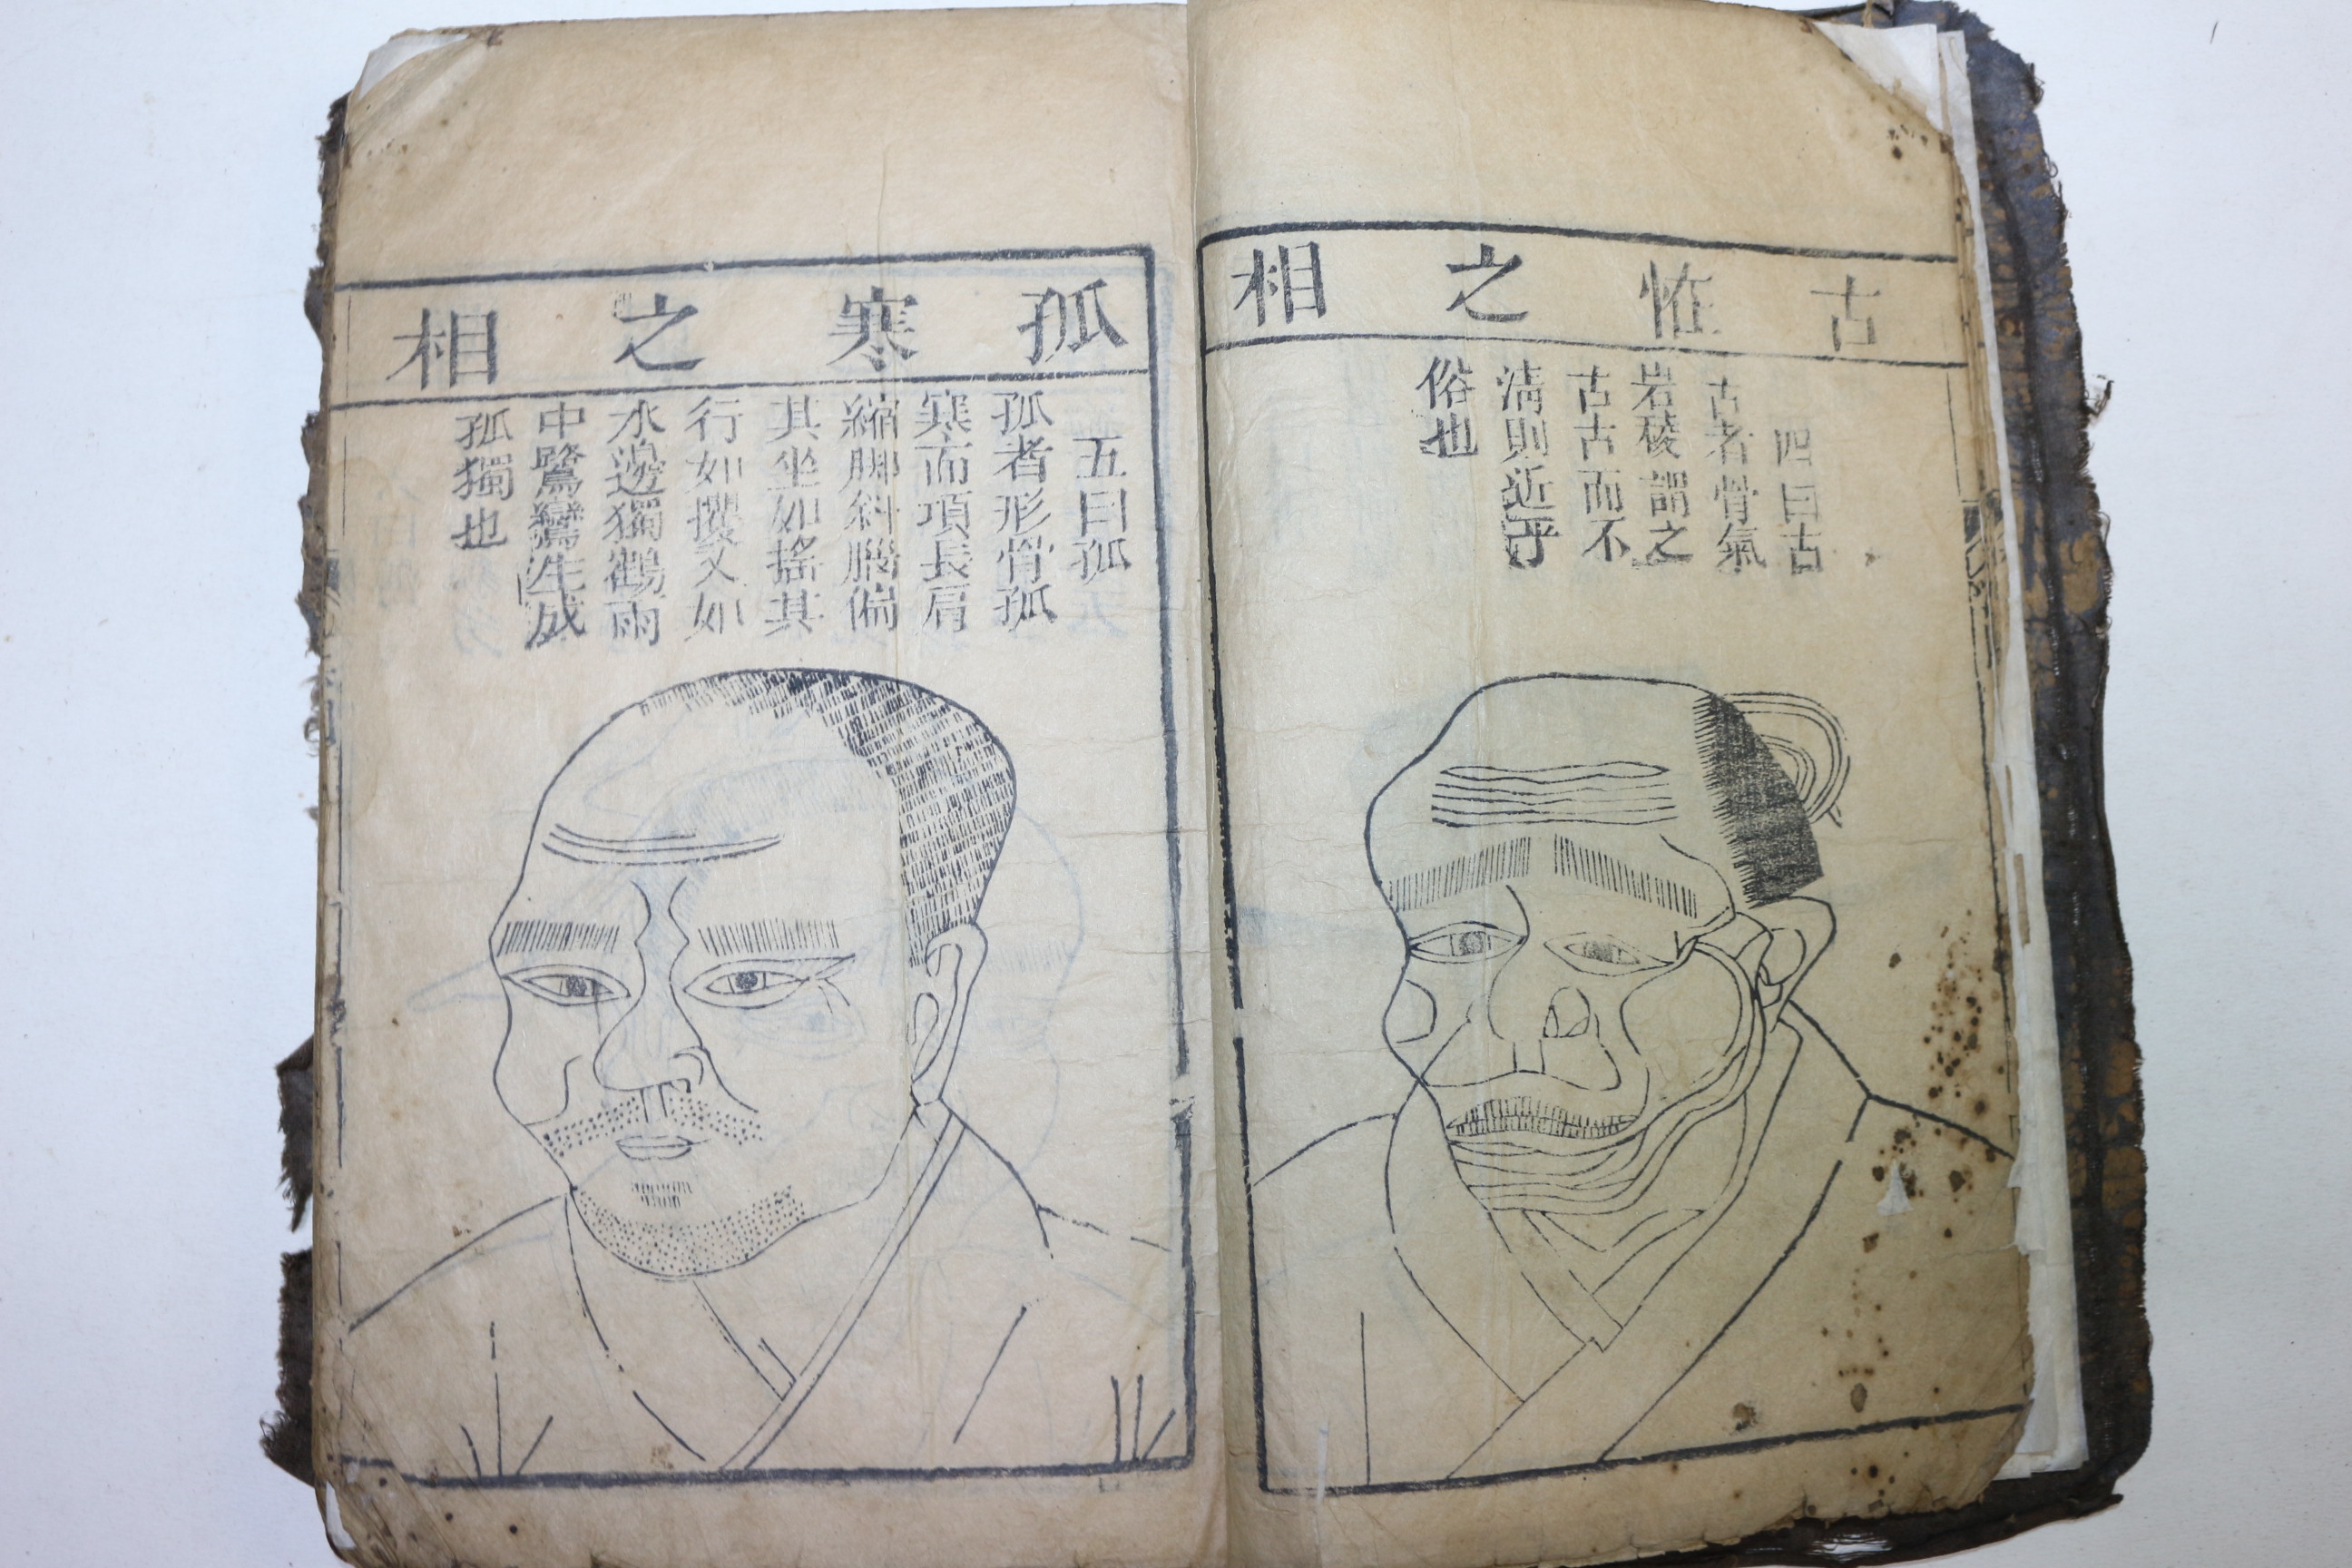 古恠之相
四曰古
古者骨氣
岩稜謂之
古古而不
淸則近乎
俗也
孤寒之相
五曰孤
孤者形骨孤
寒而項長肩
縮脚斜腦偏
其坐如搖其
行如攫又如
水邊獨鶴雨
中鷺鸞生成
孤獨也